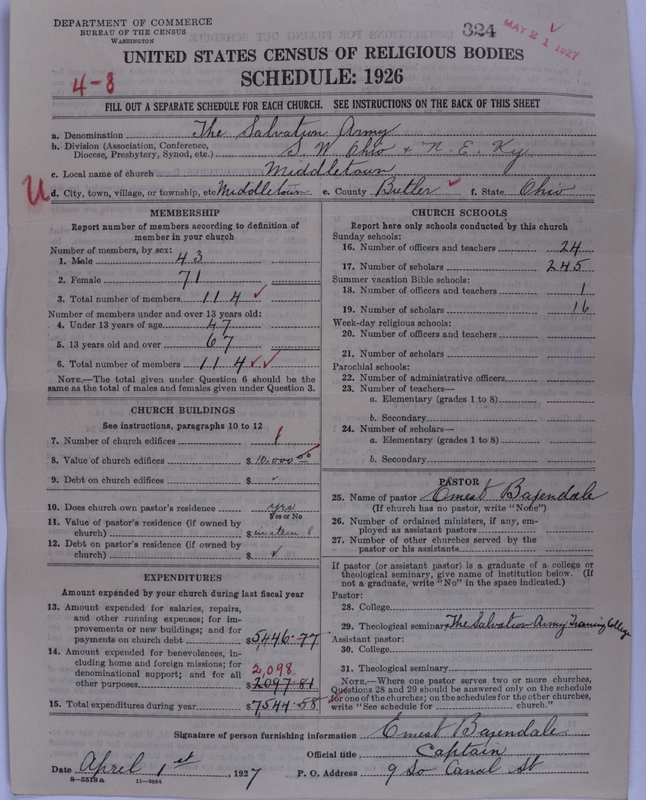 DEPARTMENT OF COMMERCE
BUREAU OF THE CENSUS
WASHINGTON
324
MAY 21 1927
UNITED STATES CENSUS OF RELIGIOUS BODIES
SCHEDULE: 1926
4-8
FILL OUT A SEPARATE SCHEDULE FOR EACH CHURCH. SEE INSTRUCTIONS ON THE BACK OF THIS SHEET
a. Denomination The Salvation Army
b. Division (Association, Conference, Diocese, Presbytery, Synod, etc.) S. W. Ohio & N. E. Ky
c. Local name of church Middletown
U
d. City, town, village, or township, etc Middletown e. County Butler f. State Ohio
MEMBERSHIP
Report number of members according to definition of
member in your church
Number of members, by sex:
1. Male 43
2. Female 71
3. Total number of members 114
Number of members under and over 13 years old:
4. Under 13 years of age 47
5. 13 years old and over 67
6. Total number of members 114
NOTE.—The total given under Question 6 should be the
same as the total of males and females given under Question 3.
CHURCH BUILDINGS
See instructions, paragraphs 10 to 12
7. Number of church edifices 1
8. Value of church edifices $ 10,000 00
9. Debt on church edifices $
10. Does church own pastor's residence yes
Yes or No
11. Value of pastor's residence (if owned by
church) $ in item 8
12. Debt on pastor's residence (if owned by
church) $
EXPENDITURES
Amount expended by your church during last fiscal year
13. Amount expended for salaries, repairs,
and other running expenses; for im-
provements or new buildings; and for
payments on church debt $ 5,446.77
14. Amount expended for benevolences, in-
cluding home and foreign missions; for
denominational support; and for all 2,098
other purposes $ 2097.81
15. Total expenditures during year $ 7,544.58
CHURCH SCHOOLS
Report here only schools conducted by this church
Sunday schools:
16. Number of officers and teachers 24
17. Number of scholars 245
Summer vacation Bible schools:
18. Number of officers and teachers 1
19. Number of scholars 16
Week-day religious schools:
20. Number of officers and teachers
21. Number of scholars
Parochial schools:
22. Number of administrative officers
23. Number of teachers—
a. Elementary (grades 1 to 8)
b. Secondary
24. Number of scholars—
a. Elementary (grades 1 to 8)
b. Secondary
PASTOR
25. Name of pastor Ernest Baxendale
(If church has no pastor, write "None")
26. Number of ordained ministers, if any, em-
ployed as assistant pastors
27. Number of other churches served by the
pastor or his assistants
If pastor (or assistant pastor) is a graduate of a college or
theological seminary, give name of institution below. (If
not a graduate, write "No" in the space indicated.)
Pastor:
28. College
29. Theological seminary The Salvation Army Training College
Assistant pastor:
30. College
31. Theological seminary
NOTE.—Where one pastor serves two or more churches,
Questions 28 and 29 should be answered only on the schedule
for one of the churches; on the schedules for the other churches,
write "See schedule for church."
Signature of person furnishing information Ernest Baxendale
Official title Captain
Date April 1st, 1927 P. O. Address 9 So Canal St
8-5518a 11-9684